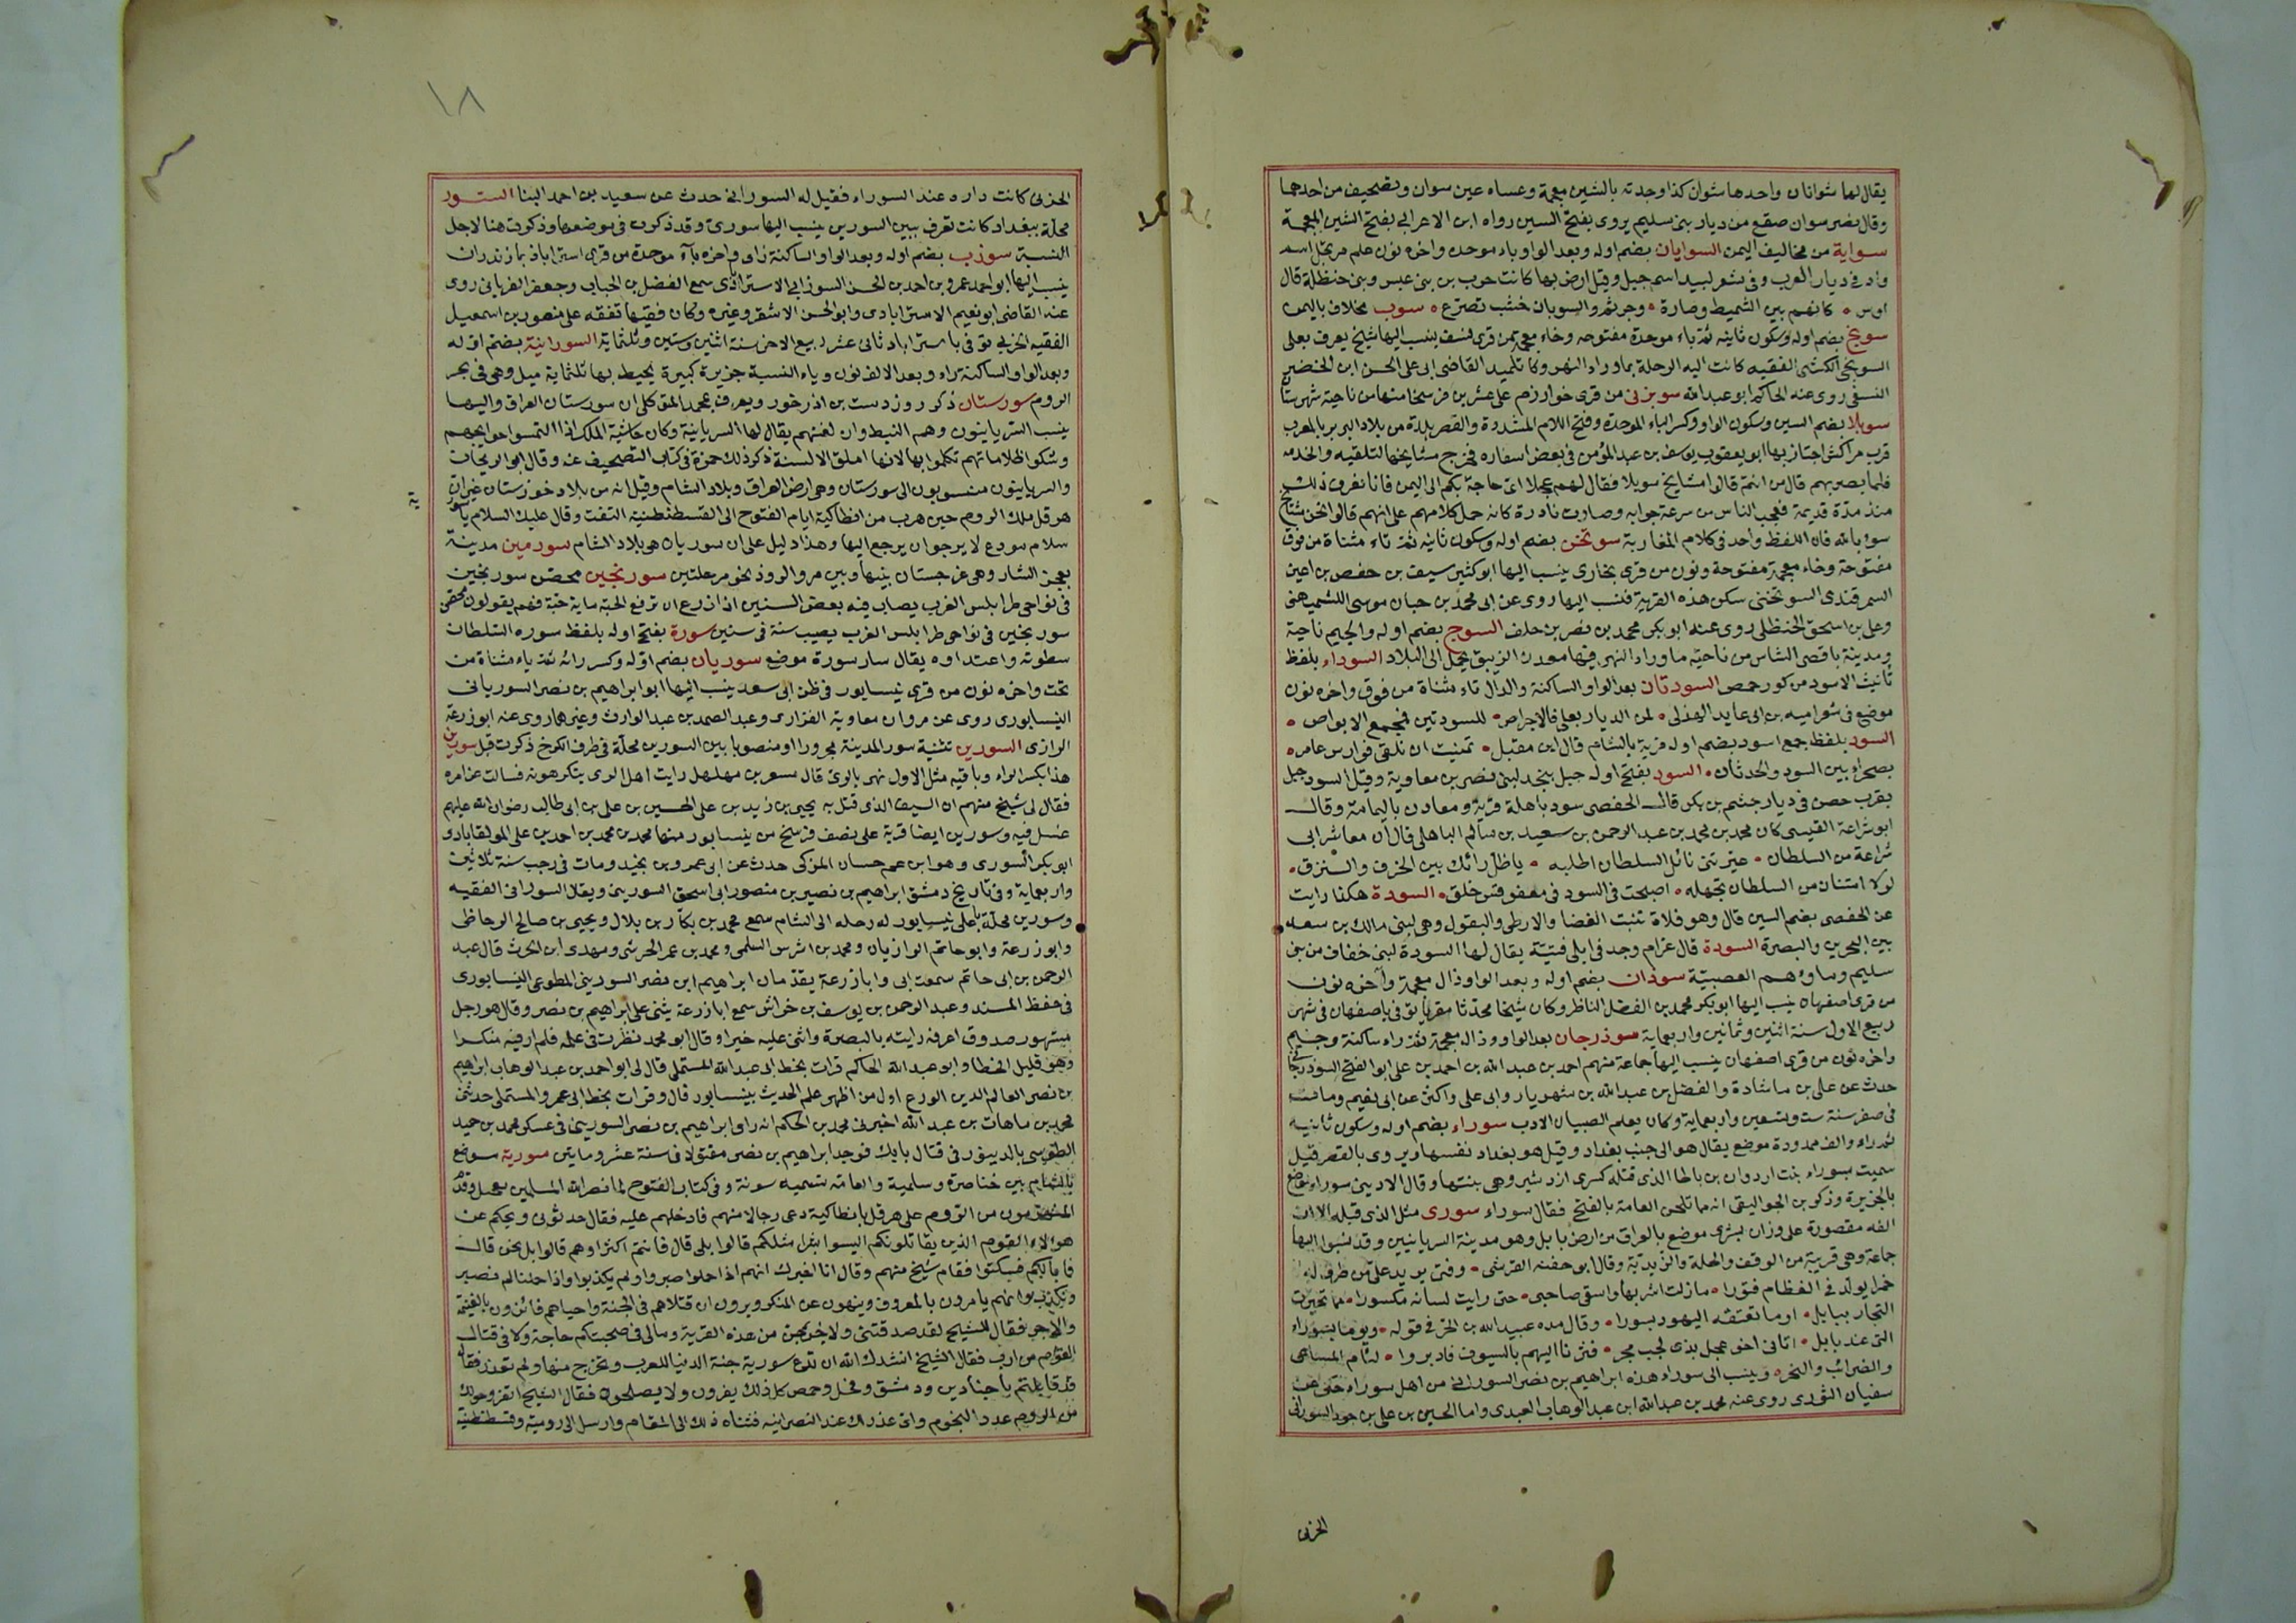 يقال لها شوانان واحدها شوان كذا وجدته بالشين معجمة وعساه عين سوان وتصحيف من احدهما
وقال نصر سوان صقع من ديار بنى سليم يروى بفتح السين رواه ابن الاعرابي بفتح الشين المعجمة
سواية من مخاليف اليمن السوبان بضم اوله وبعد الواو باء موحده واخره نون علم مرتجل اسم
واد في ديار العرب وفى شعر لبيد اسم جبل وقيل ارض بها كانت حرب بين بنى عبس وبنى حنظلة قال
اوس • كانهم بين الشميط وصارة • وجرثم والسوبان خشب تصرع • سوب مخلاف باليمن
سوبخ بضم اوله وسكون ثانيه ثم باء موحدة مفتوحه وخاء معجمة من قرى نسف ينسب اليها شيخ يعرف بعلى
السوبخى الكشى الفقيه كانت اليه الرحلة بماوراء النهر وكان تلميد القاضى ابى على الحسن ابن الخضير
النسفى روى عنه الحاكم ابو عبد الله سوبزنى من قرى خوارزم على عشرين فرسخا منها من ناحية شهرستان
سوبلا بضم السين وسكون الواو وكسر الباء الموحدة وفتح اللام المشددة والقصر بلدة من بلاد البربر بالمغرب
قرب مراكش اجتاز بها ابو يعقوب يوسف بن عبد المؤمن فى بعض اسفاره فخرج مشايخها لتلقيه والخدمه
فلما بصر بهم قال من انتم قالوا مشايخ سوبلا فقال لهم عجلا اى حاجة بكم الى اليمن فانا نعرف ذلك
منذ مدة قديمة فعجب الناس من سرعة جوابه وصارت نادرة كانه حمل كلامهم على انهم قالوا نحن مشايخ
سوء بالله فان اللفظ واحد فى كلام المغاربة سوتخن بضم اوله وسكون ثانيه ثم تاء مثناة من فوق
مفتوحة وخاء معجمة مفتوحة ونون من قرى بخارى ينسب اليها ابو كثير سيف بن حفص بن اعين
السمرقندى السوتخنى سكن هذه القرية فنسب اليها روى عن ابى محمد بن حبان موسى الكشميهنى
وعلى بن اسحق الحنظلى روى عنه ابو بكر محمد بن نصر بن خلف السوج بضم اوله والجيم ناحية
ومدينة باقصى الشاس من ناحية ماوراء النهر فيها معدن الزيبق يحمل الى البلاد السوداء بلفظ
تانيث الاسود من كور حمص السودتان بعد الواو الساكنة والدال تاء مثناة من فوق واخره نون
موضع فى شعر اميه بن ابى عايد الهذلى • لمن الديار بعلى فالاجراص • للسودتين فمجمع الابواص •
السود بلفظ جمع اسود بضم اوله قرية بالشام قال ابن مقبل • تمنيت ان نلقى فوارس عامر •
بصحراء بين السود والحدثان • السود بفتح اوله جبل بنجد لبنى نصر بن معاوية وقيل السود جبل
بقرب حصن فى ديار جشم بن بكر قال الحفصى سود باهلة قرية ومعادن باليمامة وقال
ابو شراعة القيسى كان محمد بن محمد بن عبد الرحمن بن سعيد بن سالم الباهلى قال ان معاشر ابى
شراعة من السلطان • عيرتنى نائل السلطان اطلبه • ياظل رائك بين الخرف والنزق •
لولا امتنان من السلطان تجهله • اصبحت فى السود فى مقفو قتر خلق • السودة هكذا رايت
عن الحفصى بضم السين قال وهو فلاة تنبت الغضا والارطى والبقول وهى لبنى مالك بن سعد
بين البحرين والبصرة السودة قال عزام وجد فى ابلى قنينة يقال لها السودة لبنى خفاف من بنى
سليم وماؤهم الصعبية سوذان بضم اوله وبعد الواو ذال معجمة وآخره نون
من قرى اصفهان ينسب اليها ابو بكر محمد بن الفضل الناظر وكان شيخا محدثا مقريا توفى باصفهان فى شهر
ربيع الاول سنة اثنين وثمانين واربعماية سوذرجان بعد الواو وذال معجمة ثم راء ساكنة وجيم
واخره نون من قرى اصفهان ينسب اليها جماعة منهم احمد بن عبد الله بن احمد بن على ابو الفتح السوذرجانى
حدث عن على بن ماشادة والفضل بن عبد الله بن شهريار وابى على واكثر عن ابى نعيم ومات
فى صفر سنة ست وتسعين واربعماية وكان يعلم الصبيان الادب سوراء بضم اوله وسكون ثانيه
ثم راء والف ممدودة موضع يقال هو الى جنب بغداد وقيل هو بغداد نفسها ويروى بالقصر قيل
سميت بسوراء بنت اردوان بن باطا الذى قتله كسرى ازدشير وهى بنتها وقال الاديبى سوراء موضع
بالجزيرة وذكر بن الجواليقى انه مما تلحن العامة بالفتح فقال سوراء سورى مثل الذى قبله الا ان
الفه مقصورة على وزان بشرى موضع بالعراق من ارض بابل وهو مدينة السريانيين وقد نسبوا اليها
جماعة وهى قريبة من الوقف والحلة والزيدية وقال ابو حفنه القرشى • وفتى يدير على من طرف له •
خمرا يولد فى العظام فتورا • مازلت اشربها واسقى صاحبى • حتى رايت لسانه مكسورا • مما تخيرت
التجار ببابل • اوما تعتقه اليهود بسورا • وقال مده عبيد الله بن الحر فى قوله • ويوما بسوراء
التى عند بابل • اتانى اخو عجل بذى لجب مجر • فثرنا اليهم بالسيوف فادبروا • لئام المساعى
والضرائب والنحر • وينسب الى سوراء هذه ابراهيم بن نصر السورانى من اهل سوراء حكى عن
سفيان الثورى روى عنه محمد بن عبد الله ابن عبد الوهاب العبدى واما الحسين بن على بن جود السورانى
الحربى
١٨
الحربى كانت داره عند السوراء فقيل له السورانى حدث عن سعيد بن احمد البنا السور
محلة ببغداد كانت تعرف ببين السورين ينسب اليها سورى وقد ذكرت فى موضعها وذكرت هنا لاجل
النسبة سوزب بضم اوله وبعد الواو الساكنة زاى واخره بآء موحدة من قرى استراباذ بمازندران
ينسب اليها ابو احمد عمرو بن احمد بن الحسن السوزابى الاستراباذى سمع الفضل بن الحباب وجعفر الفريابى روى
عنه القاضى ابو نعيم الاسترابادى وابو الحسن الاشقر وغيره وكان فقيها تفقه على منصور بن اسمعيل
الفقيه الحربى توفى باستراباد ثانى عشر ربيع الاخر سنة اثنين وستين وثلثماية السورانية بضم اوله
وبعد الواو الساكنة راء وبعد الالف نون وياء النسبة جزيرة كبيرة يحيط بها ثلثماية ميل وهى فى بحر
الروم سورستان ذكر روزدست بن اذرخور ويعرف بمحمد المتوكلى ان سورستان العراق واليها
ينسب السريانيون وهم النبط وان لغتهم يقال لها السريانية وكان حاشية الملك اذا التمسوا حوايجهم
وشكوا ظلاماتهم تكلموا بها لانها املق الالسنة ذكر ذلك حمزة فى كتاب التصحيف عنه وقال ابو الريحان
والسريانيون منسوبون الى سورستان وهى ارض العراق وبلاد الشام وقيل انه من بلاد خوزستان غير ان
هرقل ملك الروم حين هرب من انطاكية ايام الفتوح الى القسطنطينية التفت وقال عليك السلام يا سور
ية
سلام مودع لا يرجوا ان يرجع اليها وهذا دليل على ان سوريان هى بلاد الشام سورمين مدينة
بعجز الشار وهى غرجستان بينها وبين مرو الروذ نحو مرحلتين سورنجين محصن سورنجين
فى نواحى طرابلس الغرب يصاب فيه بعض السنين اذا زرع ان ترفع الحبة ماية حبة فهم يقولون محقن
سورنجين فى نواحى طرابلس الغرب يصيب سنة فى سنين سورة بفتح اوله بلفظ سوره السلطان
سطوته واعتداوه يقال سار سورة موضع سوريان بضم اوله وكسر رائه ثم ياء مثناة من
تحت واخره نون من قرى نيسابور فى ظن ابى سعد ينسب اليها ابو ابراهيم بن نصر السوريانى
النيسابورى روى عن مروان معاوية الفزارى وعبد الصمد بن عبد الوارث وغيرهما روى عنه ابو زرعة
الرازى السورين تثنية سور المدينة مجرورا او منصوبا بين السورين محلة فى طرف الكرخ ذكرت قبل سورين
هذا بكسر الراء وباقيه مثل الاول نهر بالرى قال مسعر بن مهلهل رايت اهل الرى يتكرهونه فسالت عن امره
فقال لى شيخ منهم ان السيف الذى قتل به يحيى بن زيد بن على الحسين بن على بن ابى طالب رضوان الله عليهم
غسل فيه وسورين ايضا قرية على نصف فرسخ من نيسابور منها محمد بن محمد بن احمد بن على المولقابادى
ابو بكر السورى وهو ابن عم حسان المزكى حدث عن ابى عمرو بن نجيد ومات فى رجب سنة ثلاثين
واربعماية وفى تاريخ دمشق ابراهيم بن نصير بن منصور ابى اسحق السورينى ويقال السورانى الفقيه
وسورين محلة باعلى نيسابور له رحله الى الشام سمع محمد بن بكار بن بلال ويحيى بن صالح الوحاظى
وابو زرعة وابو حاتم الرازيان ومحمد بن اشرس السلمى ومحمد بن عمر الحرشى ومهدى ابن الحرث قال عبد
الرحمن بن ابى حاتم سمعت ابى وابا زرعة يقدمان ابراهيم ابن نصر السورينى المطوعى النيسابورى
فى حفظ المسند وعبد الرحمن بن يوسف بن خراش سمع ابا زرعة يثنى على ابراهيم بن نصر وقال هو رجل
مشهور صدوق اعرفه رايته بالبصرة واثنى عليه خيرا وقال ابو محمد نظرت فى علمه فلم ار فيه منكرا
وهو قليل الخطا وابو عبد الله الحاكم قرات بخط ابى عبد الله المستملى قال لى ابو احمد بن عبد الوهاب ابراهيم
بن نصر العالم الدين الورع اول من اظهر علم الحديث بنيسابور قال وقرات بخط ابى عمرو المستملى حدثنى
محمد بن ماهان بن عبد الله اخبرنى محمد بن الحكم انه راى ابراهيم بن نصر السورينى فى عسكر محمد بن حميد
الطوسى بالدينور فى قتال بابك فوجد ابراهيم بن نصر مقتولا فى سنة عشر ومايتين سورية موضع
بالشام بين خناصرة وسلمية والعامة تسميه سوية وفى كتاب الفتوح لما نصر الله المسلمين بفحل وقدم
المنهزمون من الروم على هرقل بانطاكية دعى رجالا منهم فادخلهم عليه فقال حدثونى ويحكم عن
هولاء القوم الذين يقاتلونكم اليسوا بشرا مثلكم قالوا بلى قال فانتم اكثر اوهم قالوا بل نحن قال
فما بالكم فسكتوا فقام شيخ منهم وقال انا اخبرك انهم اذا حملوا صبروا ولم يكذبوا واذا حملنا لم نصبر
ونكذب وانهم يامرون بالمعروف وينهون عن المنكر ويرون ان قتلاهم فى الجنة واحياهم فائزون بالغنيمة
والاجر فقال للشيخ لقد صدقتنى ولاخرجن من هذه القرية ومالى فى صحبتكم حاجة ولا فى قتال
القوم من ارب فقال الشيخ انشدك الله ان تدع سورية جنة الدنيا للعرب وتخرج منها ولم تعذر فقال
قد قاتلتم باجنادين ودمشق وفحل وحمص كل ذلك يفرون ولا يصلحون فقال الشيخ اتفر وحولك
من الروم عدد النجوم واى عذر لك عند النصرانيه فثناه ذلك الى المقام وارسل الى رومية وقسطنطنية